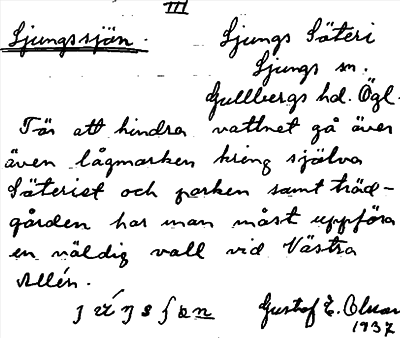 III
Ljungssjön.
Ljungs Säteri
Ljungs sn.
Gullbergs hd. Ögl.
För att hindra vattnet gå över
även lågmarken kring själva
Säteriet och parken samt träd-
gården har man måst uppföra
en väldig vall vid Västra
Allén.
Gustof E.
1937